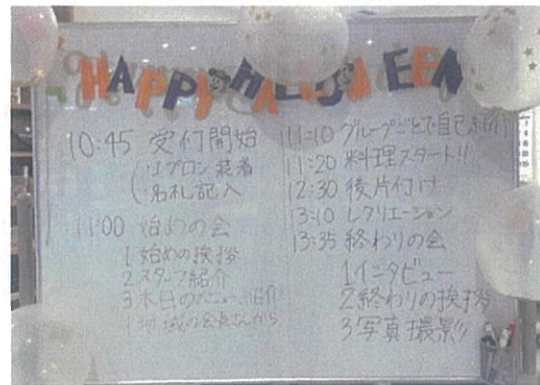 HAPPY HALLOWEEN
10:45 受付開始
・エプロン装着
・名札記入
11:00 始めの会
1 始めの挨拶
2 スタッフ紹介
3 本日のメニュー紹介
地域の会長さんから
11:10 グループごとで自己紹介
11:20 料理スタート!!
12:30 後片付け
13:10 レクリエーション
13:35 終わりの会
1 インタビュー
2 終わりの挨拶
3 写真撮影